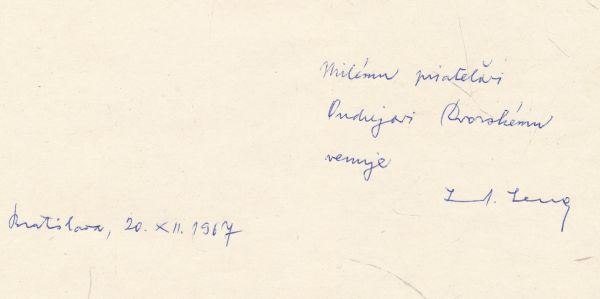 Milému priateľovi
Ondrejovi Dvorskému
venuje
Bratislava, 20. XII. 1967